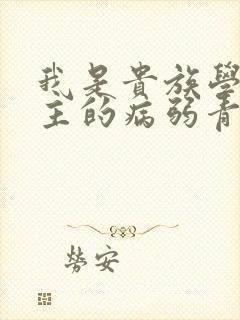 我是貴族學
主的病弱青
勞安